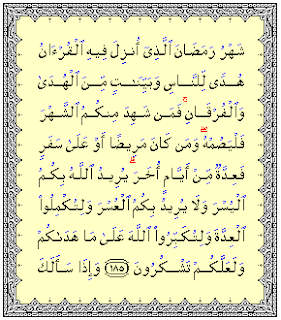 شَهْرُ رَمَضَانَ ٱلَّذِىٓ أُنزِلَ فِيهِ ٱلْقُرْءَانُ
هُدًى لِّلنَّاسِ وَبَيِّنَٰتٍ مِّنَ ٱلْهُدَىٰ
وَٱلْفُرْقَانِ ۚ فَمَن شَهِدَ مِنكُمُ ٱلشَّهْرَ
فَلْيَصُمْهُ ۖ وَمَن كَانَ مَرِيضًا أَوْ عَلَىٰ سَفَرٍ
فَعِدَّةٌ مِّنْ أَيَّامٍ أُخَرَ ۗ يُرِيدُ ٱللَّهُ بِكُمُ
ٱلْيُسْرَ وَلَا يُرِيدُ بِكُمُ ٱلْعُسْرَ وَلِتُكْمِلُوا۟
ٱلْعِدَّةَ وَلِتُكَبِّرُوا۟ ٱللَّهَ عَلَىٰ مَا هَدَىٰكُمْ
وَلَعَلَّكُمْ تَشْكُرُونَ ﴿١٨٥﴾ وَإِذَا سَأَلَكَ